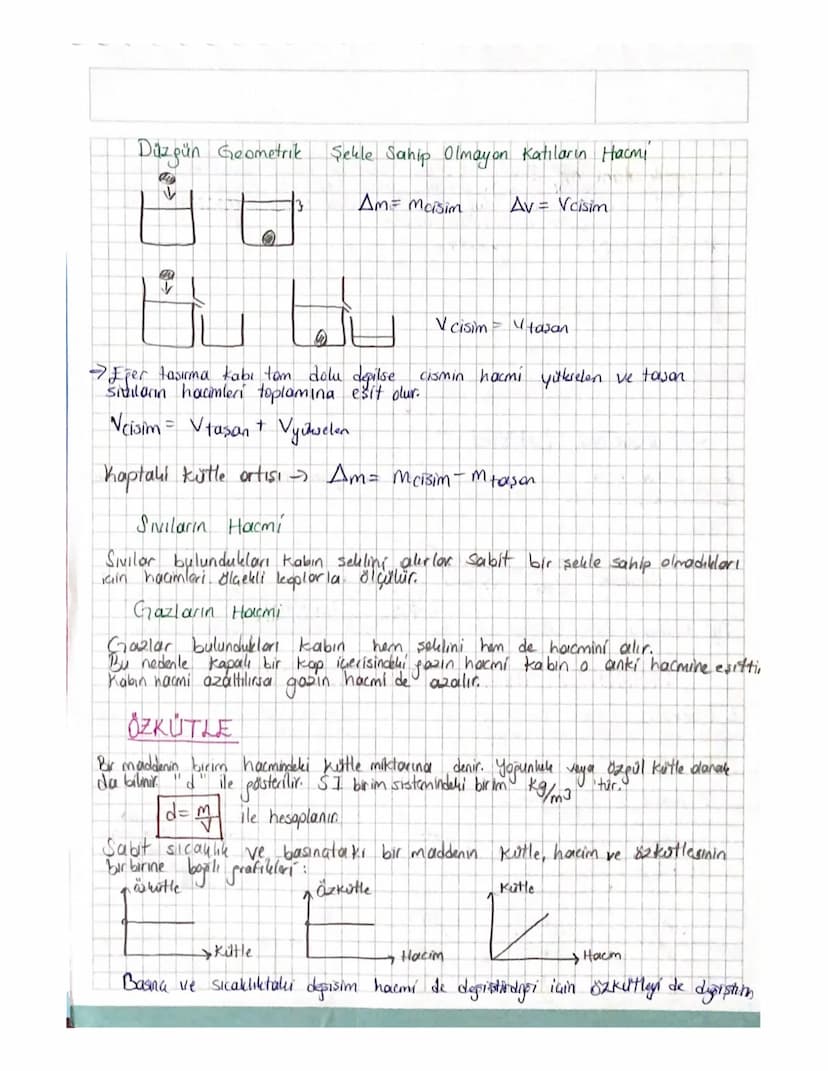 Düzgün Geometrik Şekle Sahip Olmayan Katıların Hacmi
Δm = mcisim Δv = Vcisim
Vcisim = Vtaşan
→ Eğer taşırma kabı tam dolu değilse cismin hacmi yükselen ve taşan
sıvıların hacimleri toplamına eşit olur.
Vcisim = Vtaşan + Vyükselen
Kaptaki kütle artışı → Δm = mcisim - mtaşan
Sıvıların Hacmi
Sıvılar bulundukları kabın şeklini alırlar sabit bir şekle sahip olmadıkları
için hacimleri ölçekli kaplarla ölçülür.
Gazların Hacmi
Gazlar bulundukları kabın hem şeklini hem de hacmini alır.
Bu nedenle kapalı bir kap içerisindeki gazın hacmi kabın o anki hacmine eşittir.
Kabın hacmi azaltılırsa gazın hacmi de azalır.
ÖZKÜTLE
Bir maddenin birim hacmindeki kütle miktarına denir. Yoğunluk veya özgül kütle olarak
da bilinir. "d" ile gösterilir. SI birim sistemindeki birim kg/m3 'tür.
d = m/V ile hesaplanır
Sabit sıcaklık ve basınçtaki bir maddenin kütle, hacim ve özkütlesinin
birbirine bağlı grafikleri:
özkütle Özkütle Kütle
Kütle Hacim Hacim
Basınç ve sıcaklıktaki değişim hacmi de değiştirdiği için özkütleyi de değiştirir